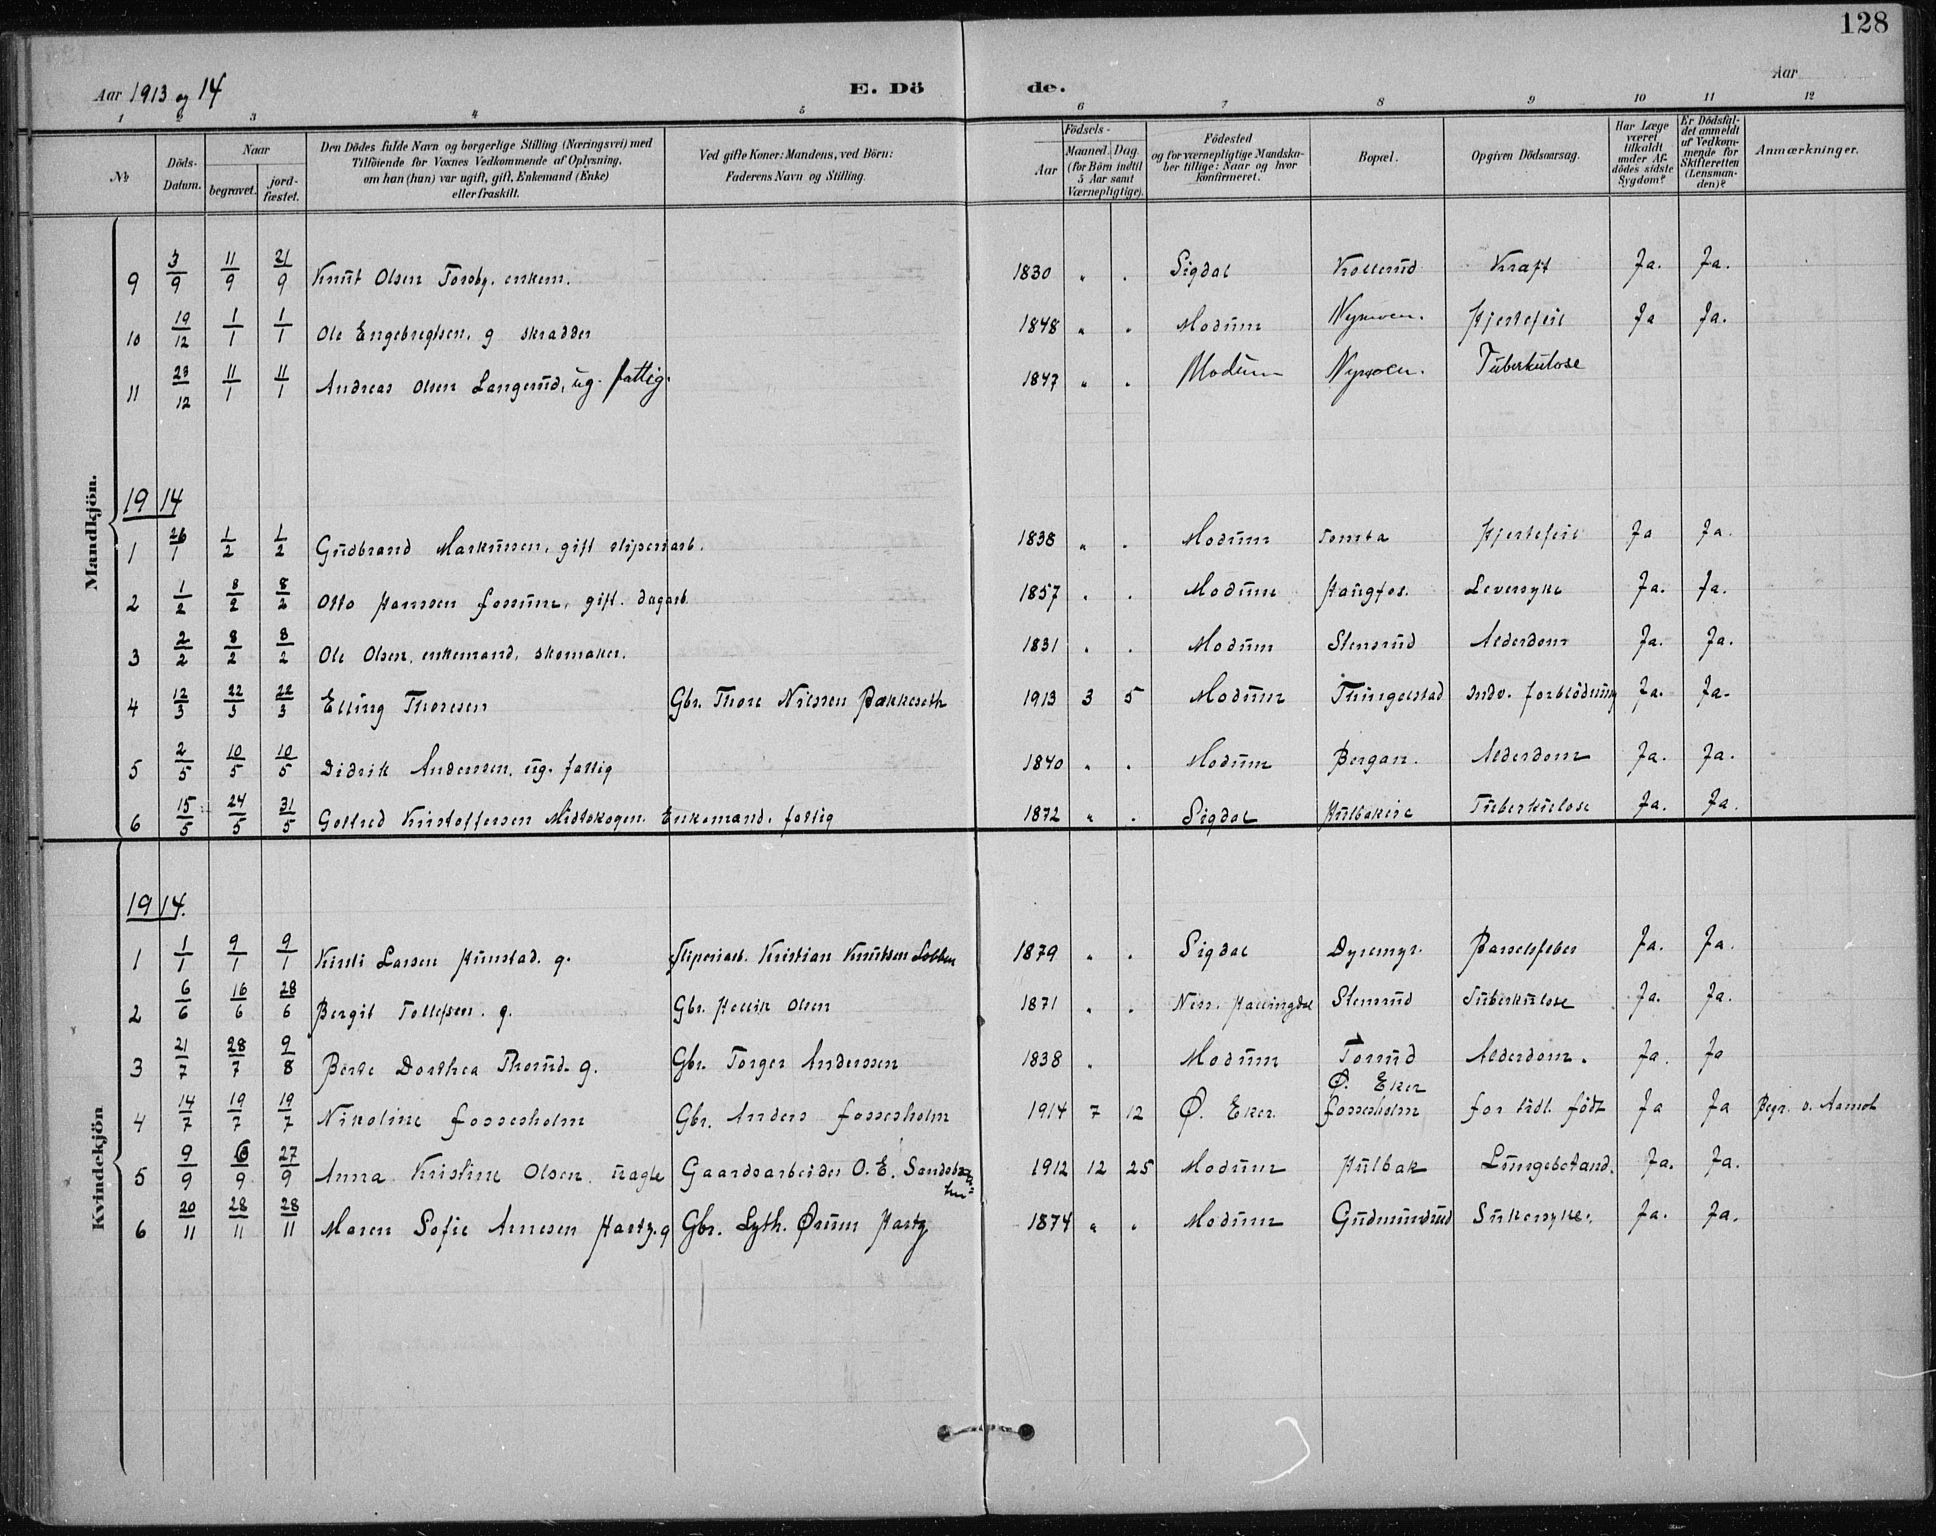 128
Aar 1913 og 14 E. Dö de. Aar
1 2 3 4 5 6 7 8 9 10 11 12
№ Döds-Datum. Naar begravet. jord-fæstet. Den Dödes fulde Navn og borgerlige Stilling (Næringsvei) med Tilföiende for Voxnes Vedkommende af Oplysning, om han (hun) var ugift, gift, Enkemand (Enke) eller fraskilt. Ved gifte Koner: Mandens, ved Börn: Faderens Navn og Stilling. Födsels- Aar Maaned. Dag. (for Börn indtil 5 Aar samt Værnepligtige). Födested og for værnepligtige Mandskaber tillige: Naar og hvor konfirmeret. Bopæl. Opgiven Dödsaarsag. Har Læge været tilkaldt under Afdödes sidste Sygdom? Er Dödsfaldet anmeldt af Vedkommende for Skifteretten (Lensmanden)? Anmærkninger.
Mandkjön.
9 3/9 11/9 21/9 Knut Olsen Forsby. enkem. 1830 " . Sigdal Kollerud Kraft Ja. Ja.
10 19/12 1/1 1/1 Ole Engebregtsen. g skrædder 1848 " " Modum Nymoen. Hjertefeil Ja Ja.
11 23/12 11/1 11/1 Andreas Olsen Langerud, ug. fattig. 1847 " . Modum Nymoen. Tuberkulose
1914
1 26/1 1/2 1/2 Gudbrand Markussen, gift sliperiarb. 1838 " . Modum Tomta Hjertefeil Ja Ja.
2 1/2 8/2 8/2 Otto Hanssen Fossum, gift. dagarb. 1857 . . Modum Haugfos. Leversyke Ja. Ja.
3 2/2 8/2 8/2 Ole Olsen, enkemand, skomaker. 1831 . . Modum Stensrud Alderdom Ja. Ja.
4 12/3 22/3 22/3 Elling Thoresen Gbr. Thore Nilssen Bækkeseth 1913 3 5 Modum Thingelstad Indv. forblödning Ja. Ja.
5 2/5 10/5 10/5 Didrik Anderssen, ug. fattig 1840 " . Modum Bergan. Alderdom Ja. Ja.
6 15/5 24/5 31/5 Gotfred Kristoffersen Midtskogen. Enkemand, fattig 1872 " . Sigdal Hulbakeie Tuberkulose Ja. Ja.
Kvindekjön
1914.
1 1/1 9/1 9/1 Kirsti Larsen Hunstad. g. Sliperiarb. Kristian Knutsen Lobben 1879 " . Sigdal Dyremyr. Barselsfeber Ja. Ja.
2 6/6 16/6 28/6 Bergit Tollefsen. g. Gbr. Hellik Olsen 1871 . . Ness. Hallingdal Stensrud Tuberkulose Ja. Ja.
3 21/7 28/7 9/8 Berte Dorthea Thorud. g. Gbr. Torger Anderssen 1838 " Modum Torud Alderdom. Ja. Ja
4 14/7 19/7 19/7 Nikoline Fossesholm Gbr. Anders Fossesholm 1914 7 12 Ø. Eker. Ø. Eker Fossesholm For tidl. födt Ja Ja Begr. v. Aamot
5 9/9 6/9 27/9 Anna Kristine Olsen. uægte Gaardsarbeider O. E. 1912 12 25 Modum Hulbak Lungebetænd. Ja. Ja.
6 20/11 28/11 28/11 Maren Sofie Arnesen Hartz. g Gbr. Lyth. Ørum Hartz 1874 " " Modum Gudmundrud Sukersyke. Ja. Ja.